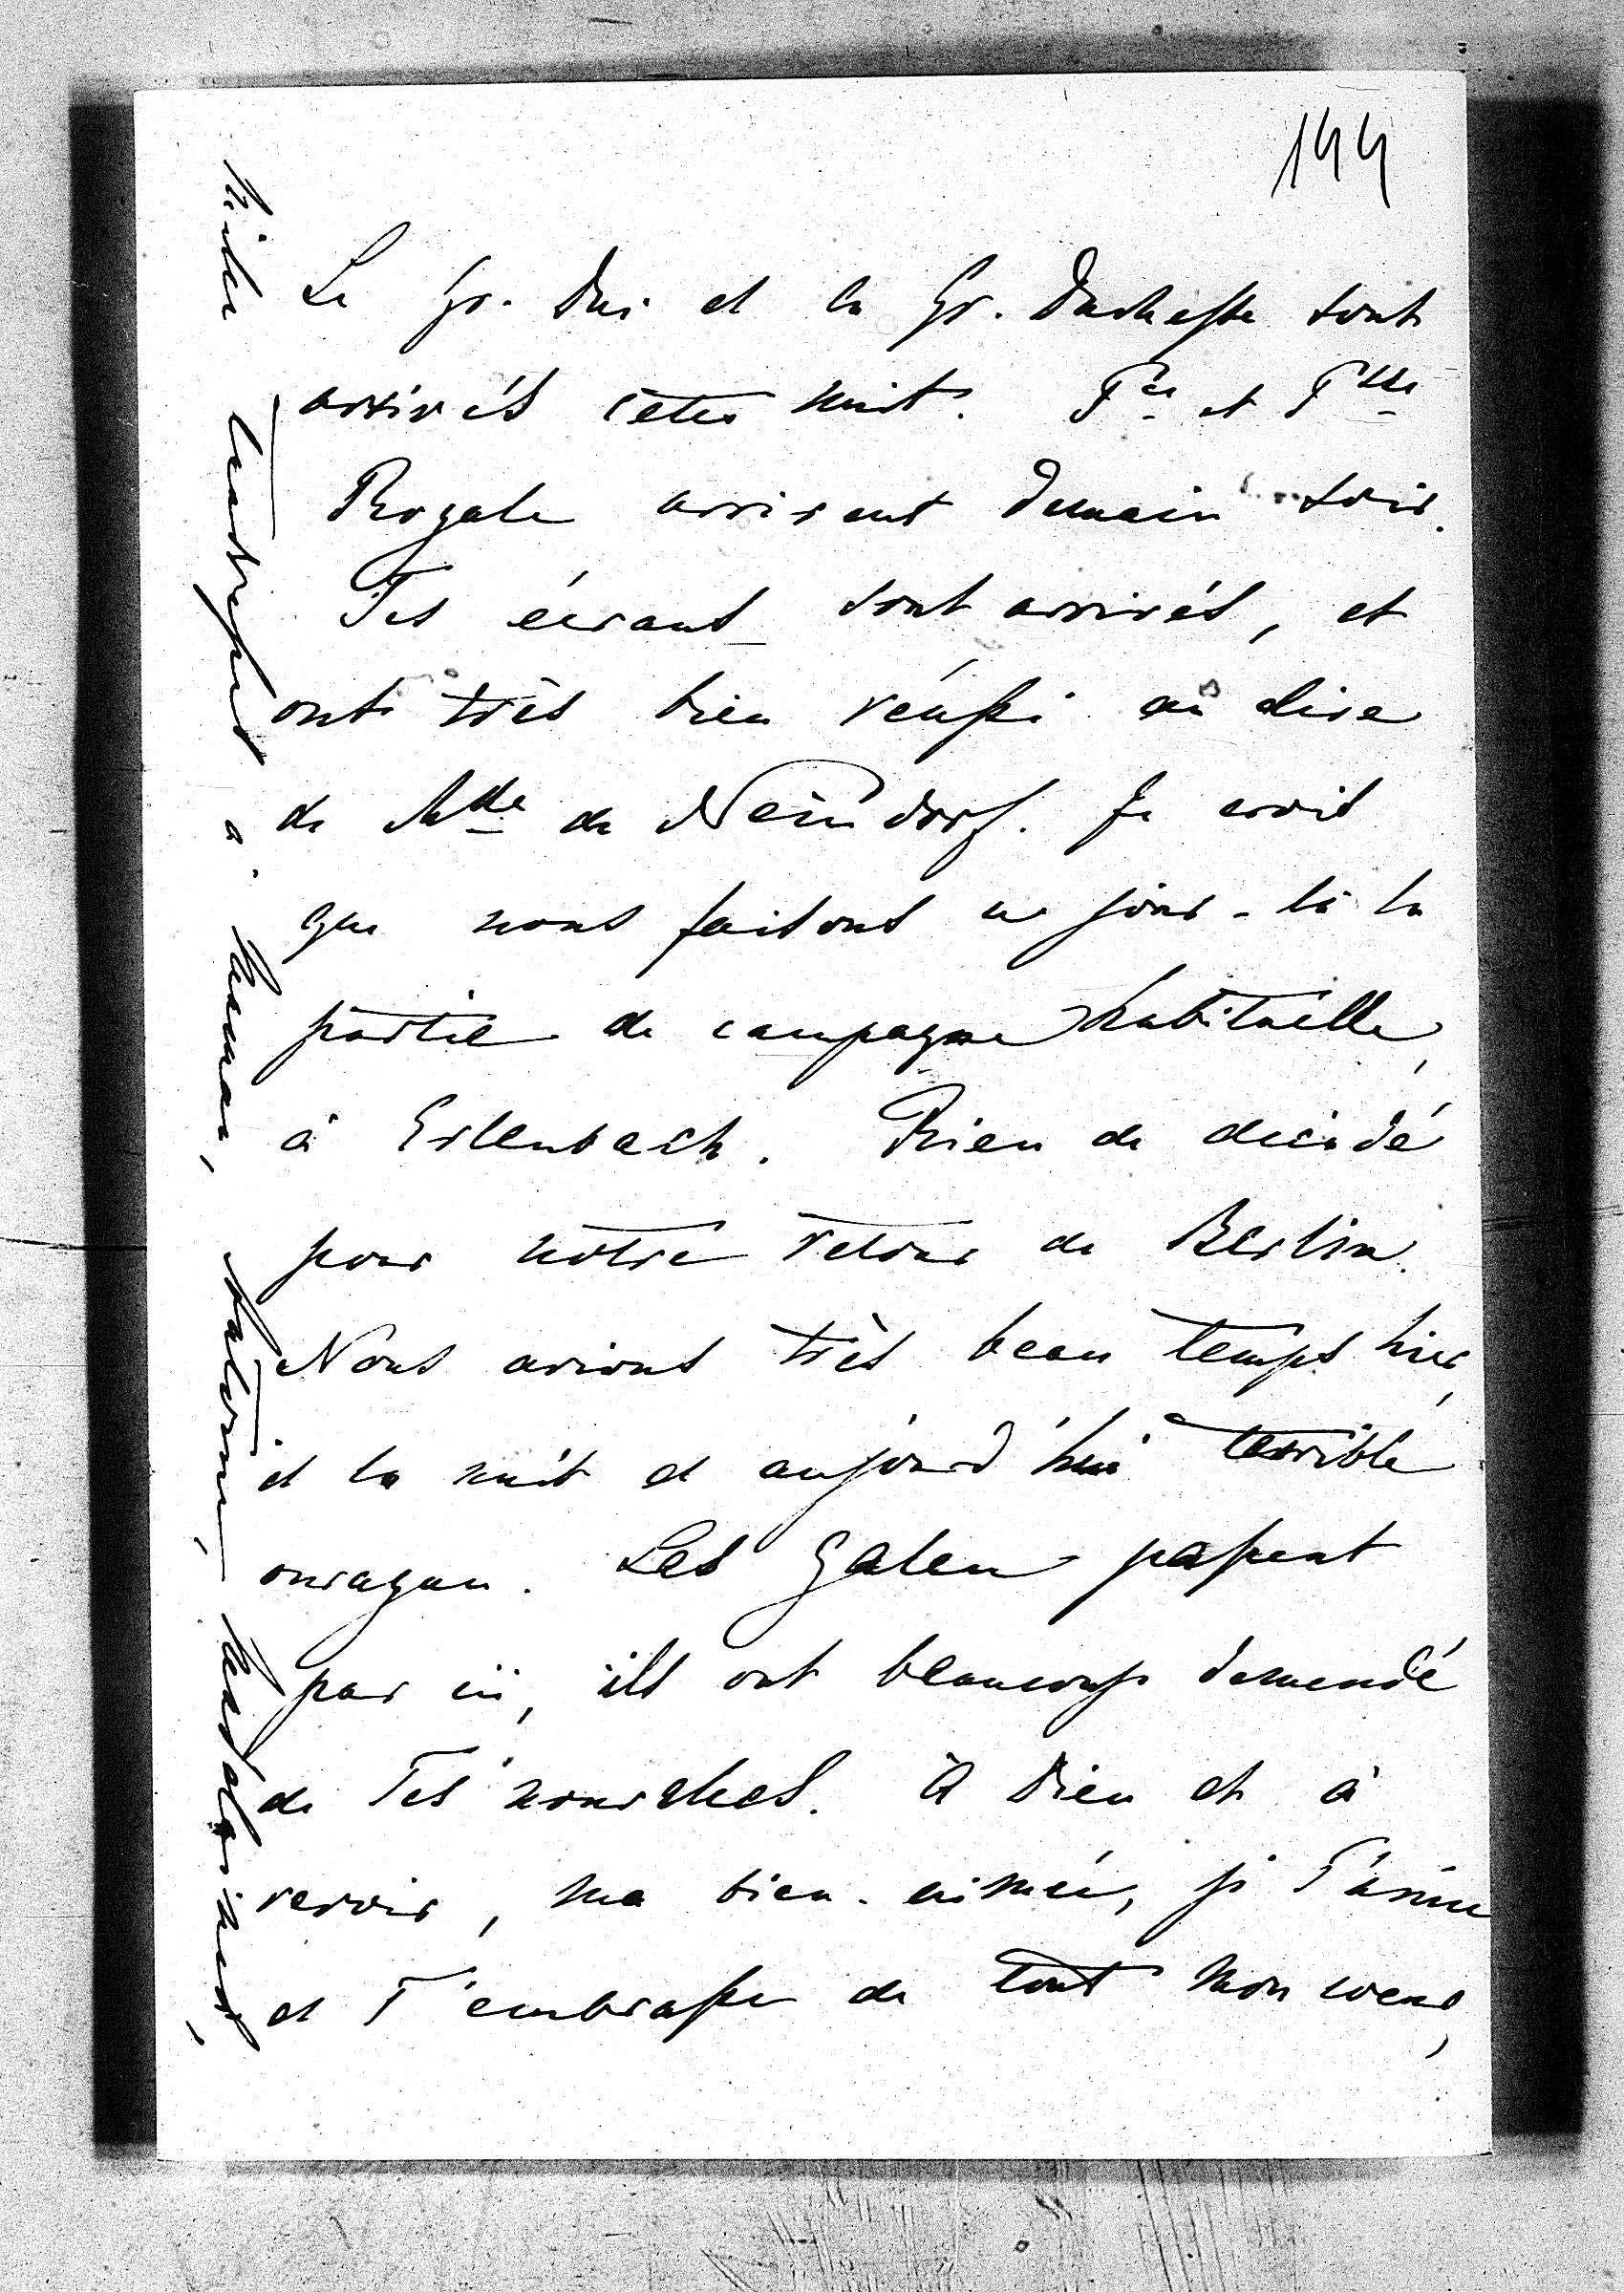 144
Le Gr. Duc et la Gr. Duchesse sont
arrivés cette nuit. Pce et Psse
Royale arrivent demain soir.
Tes écrans sont arrivés, et
ont très bien réussi au dire
de Mde de Neindorf. Je crois
que nous faisons ce jour-là la
partie de campagne habituelle,
à Erlenbach. Rien de décidé
pour notre retour de Berlin.
Nous avions très beau temps hier,
et la nuit et aujourd'hui terrible
ouragan. Les Galen passent
par ici, ils ont beaucoup demandé
de Tes nouvelles. A Dieu et à
revoir, ma bien-aimée, je T'aime
et T'embrasse de tout mon coeur,
mille tendresses à Maman,